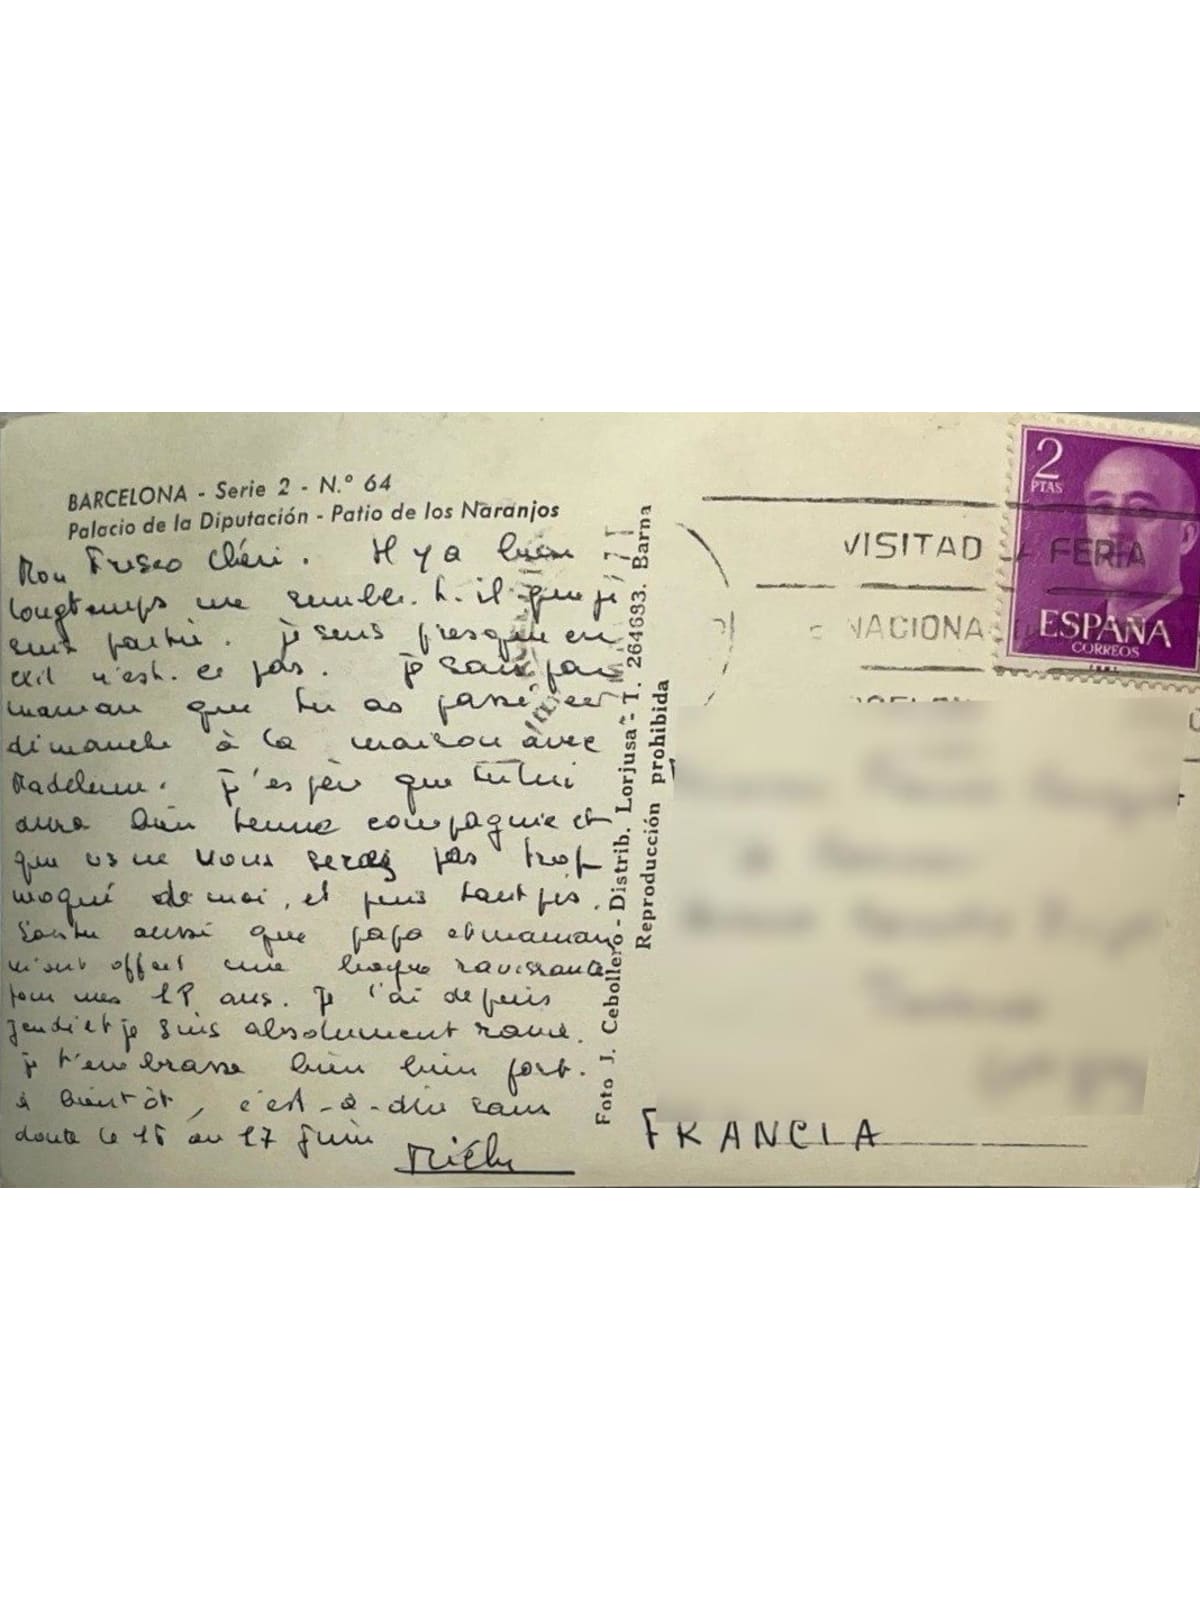 BARCELONA - Serie 2 - N.º 64
Palacio de la Diputación - Patio de los Naranjos
Mon Frisco Chéri. Il y a bien
longtemps me semble-t-il que je
suis partie. Je sens presque en
exil n'est-ce pas. Je sais par
maman que tu as passé
dimanche à la maison avec
Madeleine. J'espère que tu lui
aura bien tenue compagnie et
que vs ne vous serez pas trop
moqué de moi, et puis tant pis.
Sais tu aussi que papa et maman
m'ont offert une bague ravissante
pour mes 18 ans. Je l'ai depuis
jeudi et je suis absolument ravie.
je t'embrasse bien bien fort.
à bientôt, c'est-à-dire sans
doute le 16 ou 17 Juin
Foto J. Cebollero - Distrib. Lorjusa - T. 264683. Barna
Reproducción prohibida
VISITAD LA FERIA
NACIONA
2
PTAS
ESPAÑA
CORREOS
FRANCIA